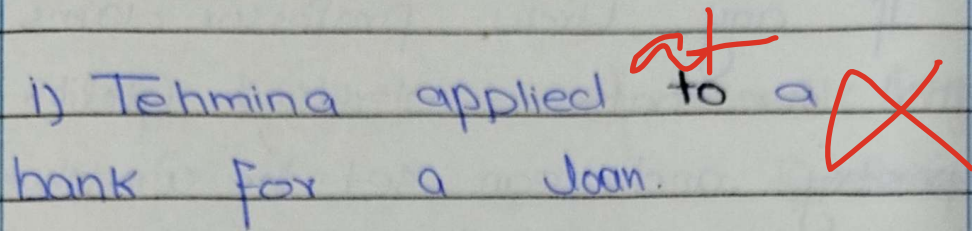 at
i) Tehmina applied to a
bank for a loan.